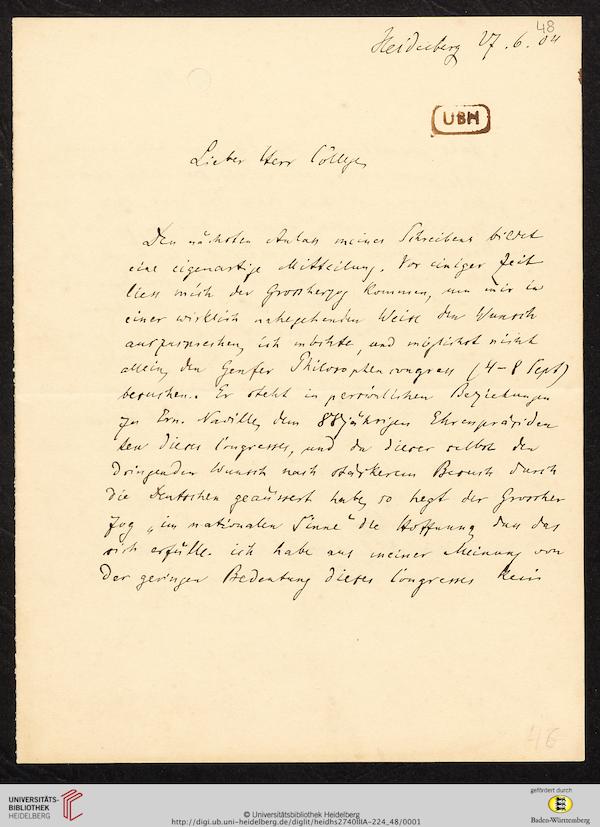 48
Heidelberg 27.6.04
UBH
Lieber Herr College,
Den nächsten Anlass meines Schreibens bildet
eine eigenartige Mitteilung. Vor einiger Zeit
liess mich der Grossherzog kommen, um mir in
einer wirklich nahegehenden Weise den Wunsch
auszusprechen, ich möchte, und möglichst nicht
allein, den Genfer Philosophencongress (4–8 Sept)
besuchen. Er steht in persönlichen Beziehungen
zu Ern. Naville, dem 88jährigen Ehrenpräsiden
ten dieses Congresses, und da dieser selbst den
dringenden Wunsch nach stärkerem Besuch durch
die Deutschen geäussert habe, so hegt der Grossher
zog „im nationalen Sinne" die Hoffnung, dass das
sich erfülle. ich habe aus meiner Meinung von
der geringen Bedeutung dieses Congresses kein
46
UNIVERSITÄTS-
BIBLIOTHEK
HEIDELBERG
© Universitätsbibliothek Heidelberg
http://digi.ub.uni-heidelberg.de/diglit/heidhs2740IIIA-224_48/0001
gefördert durch
Baden-Württemberg